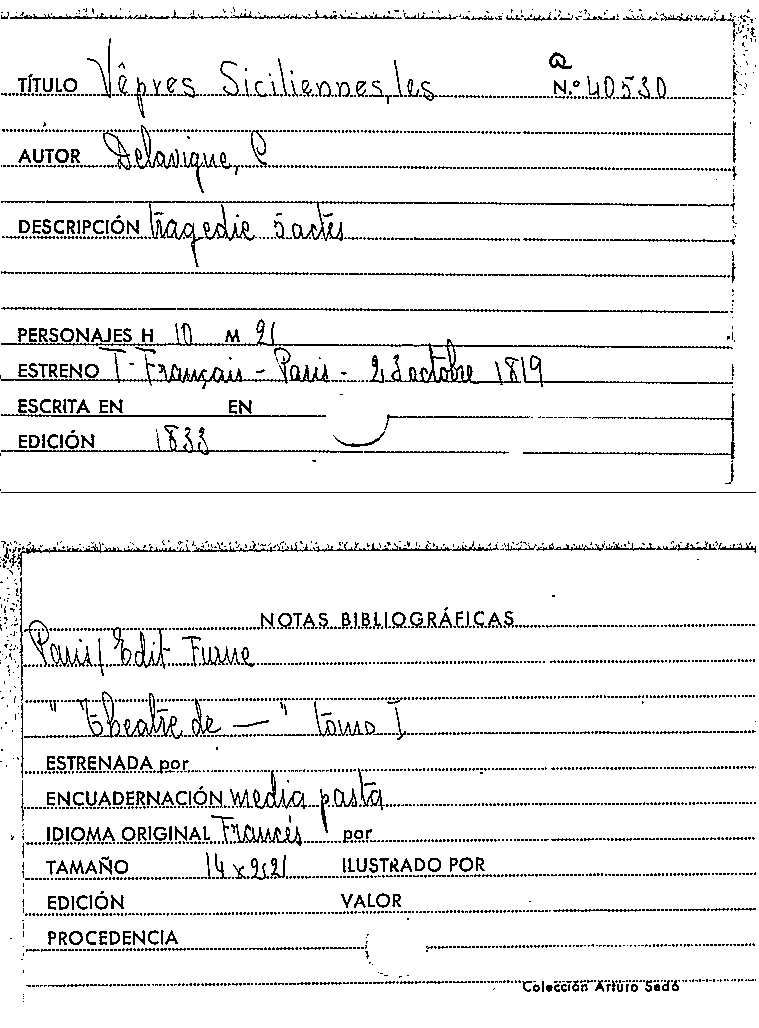 a
TÍTULO Vêpres Siciliennes, les N.º 40530
AUTOR Delavigne, C
DESCRIPCIÓN tragedie 5 actes
PERSONAJES H 10 M 2
ESTRENO T. Français - Paris - 23 octobre 1819
ESCRITA EN EN
EDICIÓN 1833
NOTAS BIBLIOGRÁFICAS
Paris / Edit Furne
"Theatre de — " tomo I
ESTRENADA por
ENCUADERNACIÓN media pasta
IDIOMA ORIGINAL Francés por
TAMAÑO 14 x ILUSTRADO POR
EDICIÓN VALOR
PROCEDENCIA
Colección Arturo Sedó